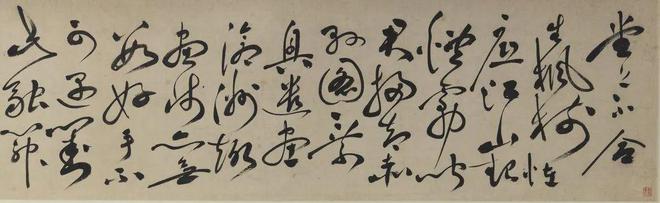 堂上不合
生楓樹恠
底江山起
煙霧聞
君掃却赤
縣圖乘
興遣畫
滄洲趣
畫師亦無
數好手不
可遇對
此融心神